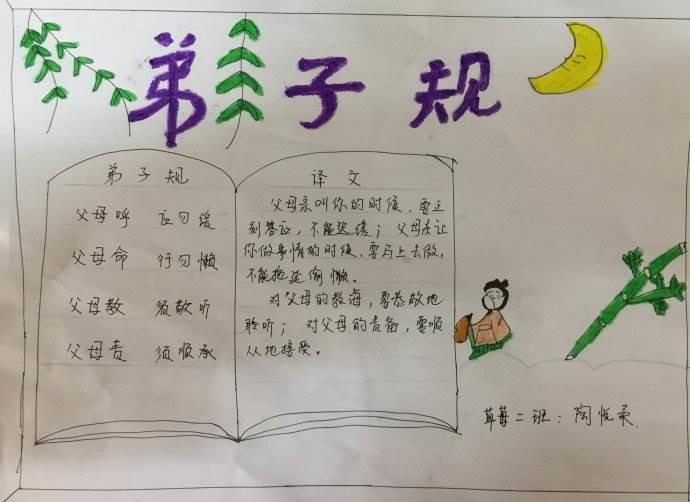 弟子规
弟子规
父母呼 应勿缓
父母命 行勿懒
父母教 须敬听
父母责 须顺承
译文
父母亲叫你的时候,要立
刻答应,不能迟缓;父母亲让
你做事情的时候,要马上去做,
不能拖延偷懒。
对父母的教诲,要恭敬地
聆听;对父母的责备,要顺
从地接受。
草莓二班:陶悦柔